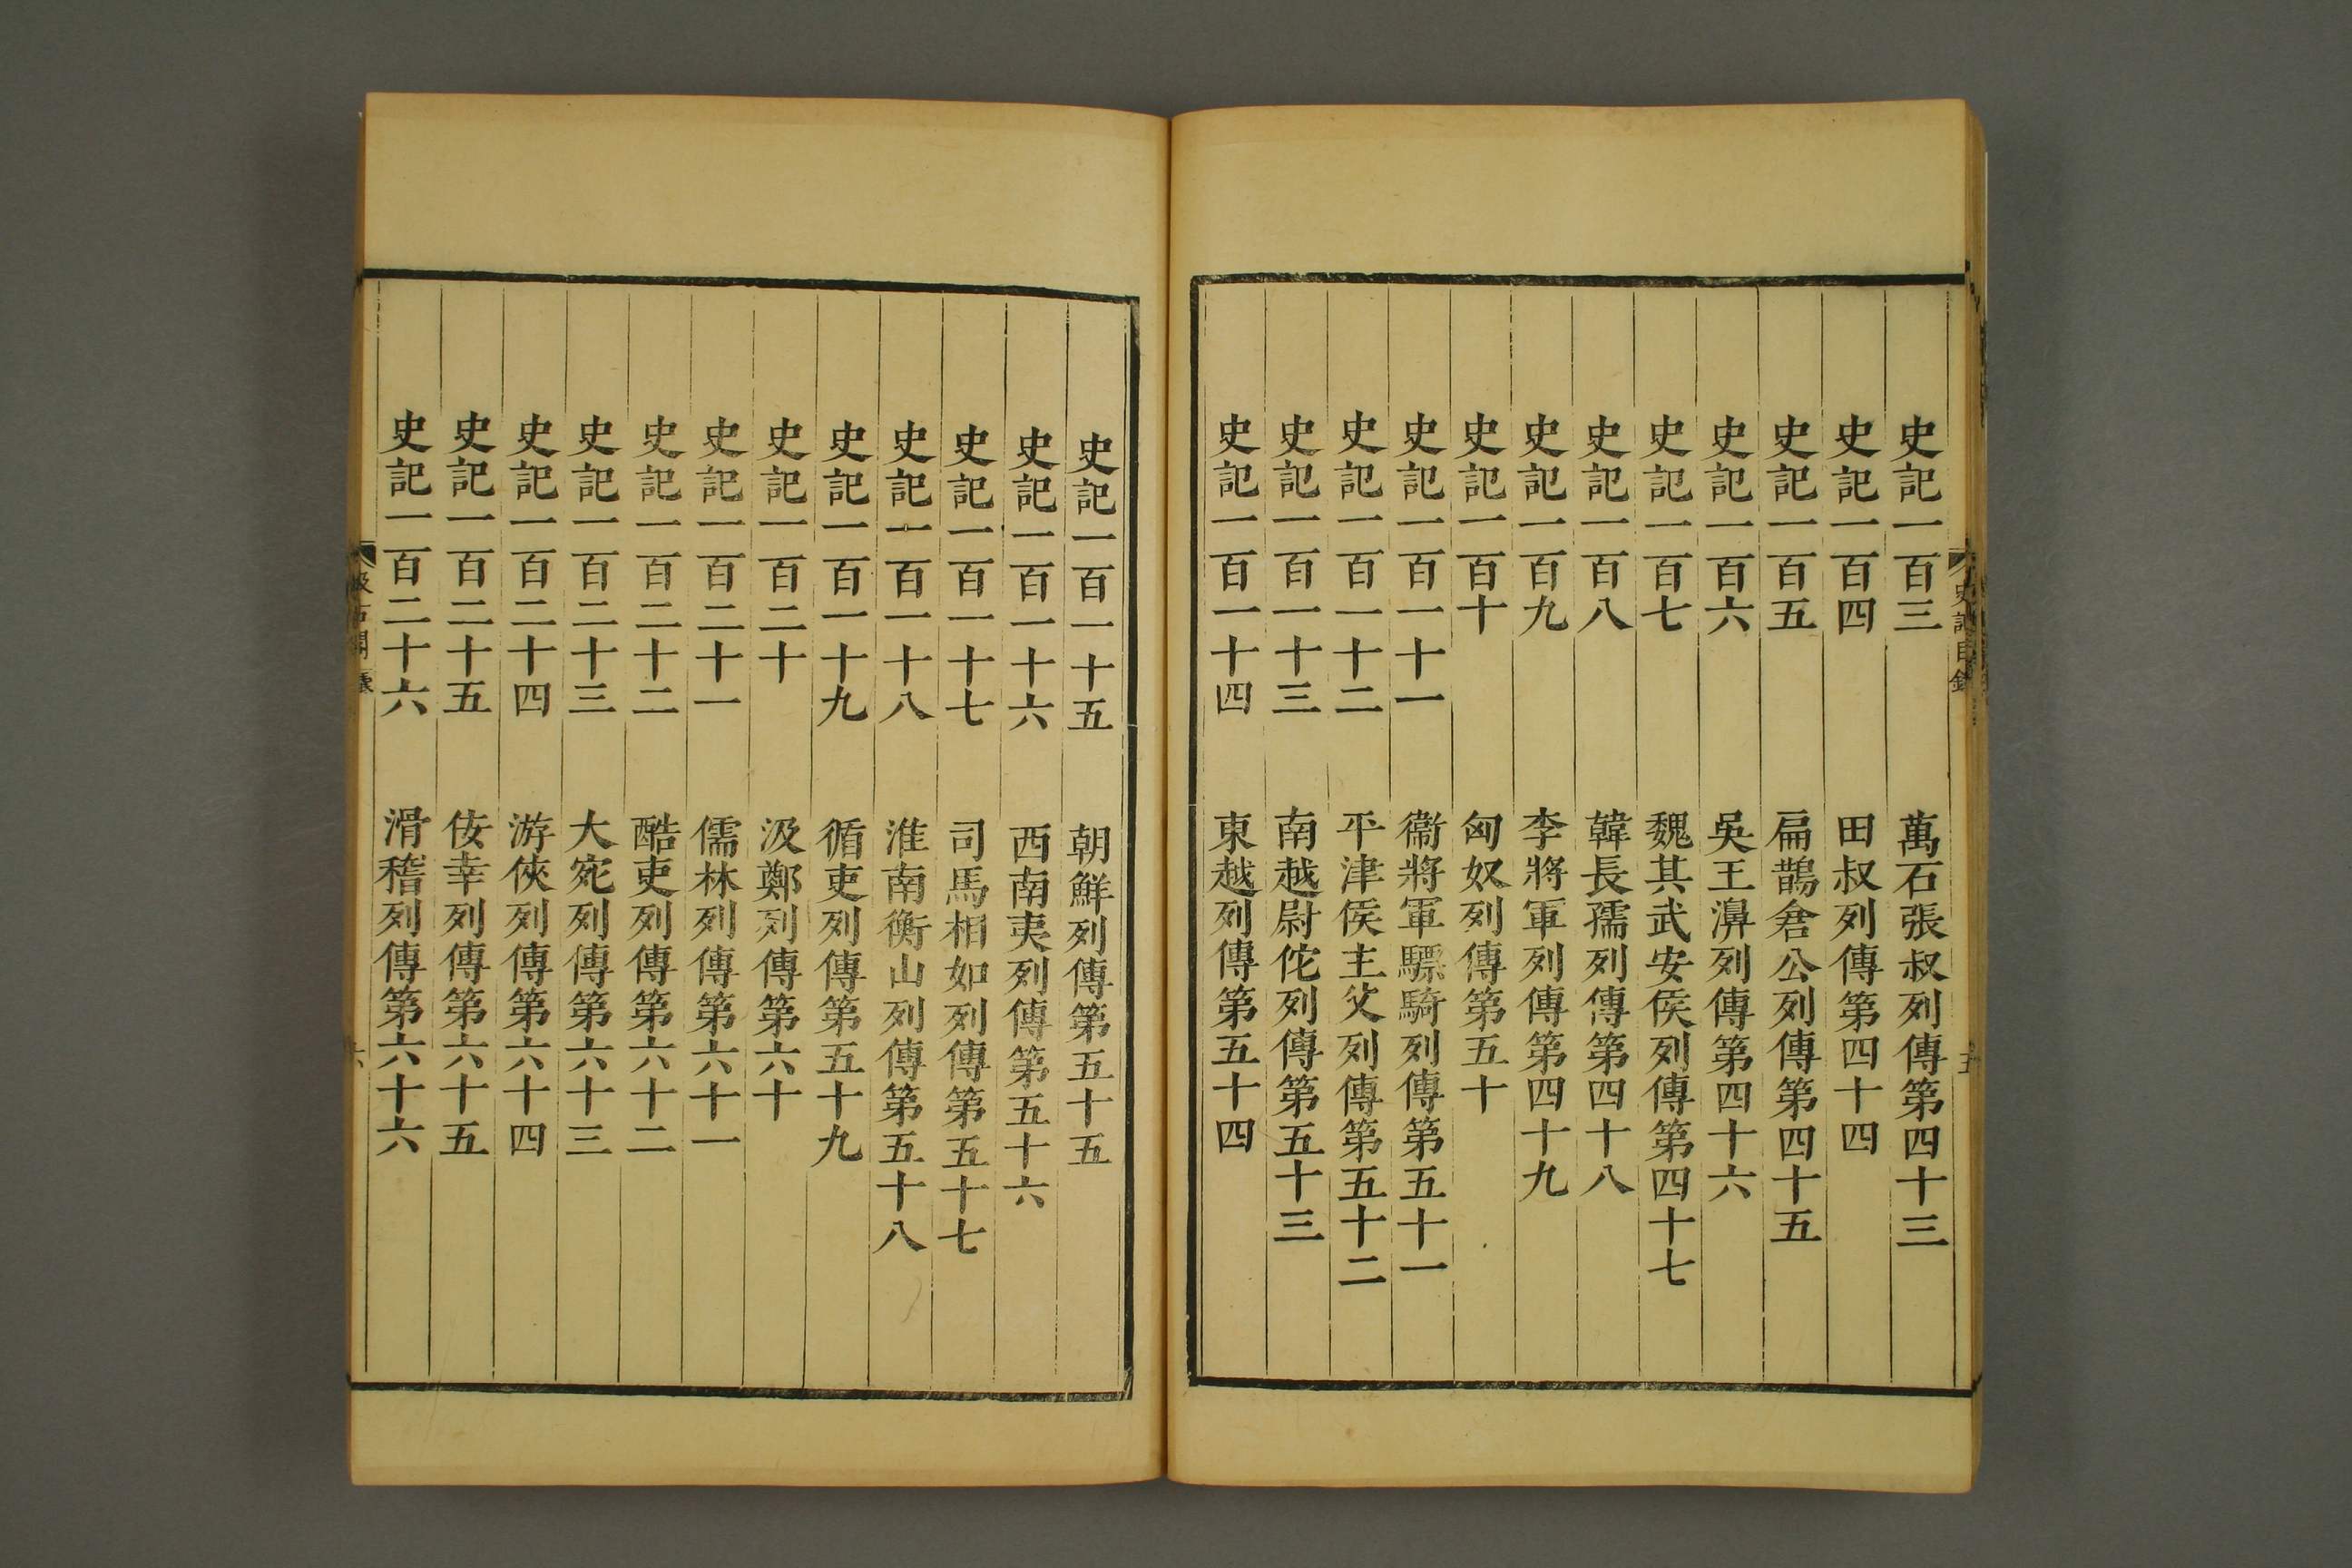 史記一百三 萬石張叔列傳第四十三
史記一百四 田叔列傳第四十四
史記一百五 扁鵲倉公列傳第四十五
史記一百六 吳王濞列傳第四十六
史記一百七 魏其武安侯列傳第四十七
史記一百八 韓長孺列傳第四十八
史記一百九 李將軍列傳第四十九
史記一百十 匈奴列傳第五十
史記一百一十一 衞將軍驃騎列傳第五十一
史記一百一十二 平津侯主父列傳第五十二
史記一百一十三 南越尉佗列傳第五十三
史記一百一十四 東越列傳第五十四
史記一百一十五 朝鮮列傳第五十五
史記一百一十六 西南夷列傳第五十六
史記一百一十七 司馬相如列傳第五十七
史記一百一十八 淮南衡山列傳第五十八
史記一百一十九 循吏列傳第五十九
史記一百二十 汲鄭列傳第六十
史記一百二十一 儒林列傳第六十一
史記一百二十二 酷吏列傳第六十二
史記一百二十三 大宛列傳第六十三
史記一百二十四 游俠列傳第六十四
史記一百二十五 佞幸列傳第六十五
史記一百二十六 滑稽列傳第六十六